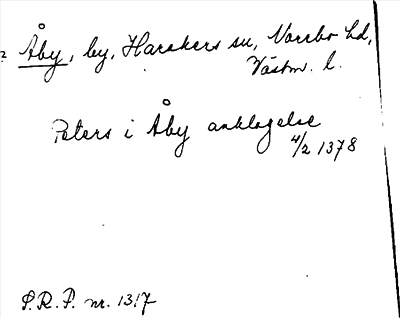 Åby, by, Harakers sn, Norrbo hd,
Västm. l.
Peters i Åby anklagelse
4/2 1378
S.R.P. nr. 1317